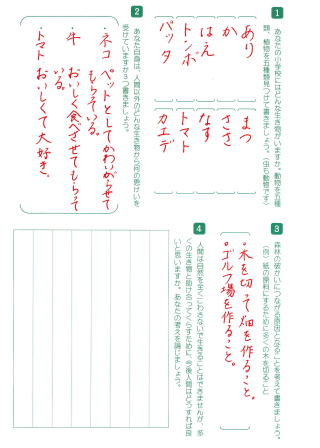 1 あなたの小学校にはどんな生き物がいますか。動物を五種
類、植物を五種類見つけて書きましょう。(虫も動物です)
あり
か
はえ
トンボ
バッタ
まつ
ささ
なす
トマト
カエデ
2 あなた自身は、人間以外のどんな生き物から何の恵けいを
受けていますか三つ書きましょう。
・ネコ ペットとしてかわいがらせて
もらっている。
・牛 おいしく食べさせてもらって
いる。
・トマト おいしくて大好き。
3 森林の破かいにつながる原因となることを考えて書きましょう。
(例) 紙の原料にするために多くの木を切ること
・木を切って畑を作ること。
・ゴルフ場を作ること。
4 人間は自然を全くこわさないで生きることはできませんが、多
くの生き物と助け合ってくらすために、今後人間はどうすれば良
いと思いますか。あなたの考えを論じましょう。